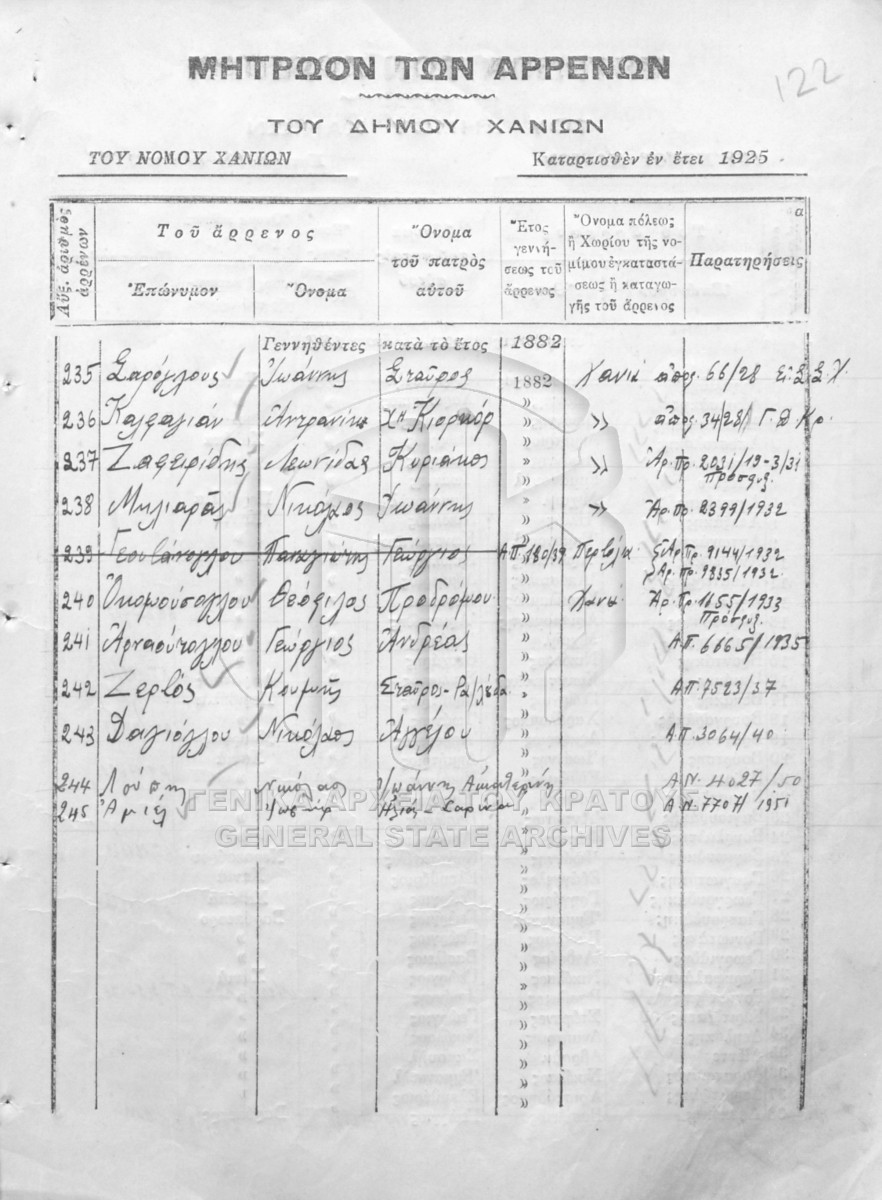 122
ΜΗΤΡΩΟΝ ΤΩΝ ΑΡΡΕΝΩΝ
ΤΟΥ ΔΗΜΟΥ ΧΑΝΙΩΝ
ΤΟΥ ΝΟΜΟΥ ΧΑΝΙΩΝ Καταρτισθὲν ἐν ἔτει 1925
Αὔξ. ἀριθμὸς ἀρρένων
Τοῦ ἄρρενος
Ἐπώνυμον Ὄνομα
Ὄνομα τοῦ πατρὸς αὐτοῦ
Ἔτος γεννήσεως τοῦ ἄρρενος
Ὄνομα πόλεως ἢ Χωρίου τῆς νομίμου ἐγκαταστάσεως ἢ καταγωγῆς τοῦ ἄρρενος
α
Παρατηρήσεις
Γεννηθέντες κατὰ τὸ ἔτος 1882
235 Σαρόγλους Ἰωάννης Σταῦρος 1882 Χανιά 66/28
236 Καλφαγιάν Ἀντρανίκ Χη Κιορκόρ » » 34/28
237 Ζαφειρίδης Λεωνίδας Κυριάκος » » Ἀρ. πρ. 2031/19-3/31
Προσφυξ.
238 Μηλιαρᾶς Νικόλαος Ἰωάννης » » Ἀρ. πρ. 2399/1932
239 Παναγιώτης Γεώργιος Α.Π. 180/39 Περβόλια Ἀρ. πρ. 9144/1932
Ἀρ. πρ. 9835/1932
240 Θεόφιλος Προδρόμου Χανιά Ἀρ. πρ. 1655/1933
Προσφυξ.
241 Ἀρναούτογλου Γεώργιος Ἀνδρέας » Α.Π. 6665/1935
242 Ζερβός Σταῦρος » Α.Π. 7523/37
243 Δαγιόγλου Νικόλαος Ἀγγέλου » Α.Π. 3064/40
244 Λούπης Νικόλαος Ἰωάννης Αἰκατερίνη » Α.Ν. 4027/50
245 Ἀμιέλ Ἰωσήφ » Α.Ν. 7707/1951
ΓΕΝΙΚΑ ΑΡΧΕΙΑ ΤΟΥ ΚΡΑΤΟΥΣ
GENERAL STATE ARCHIVES